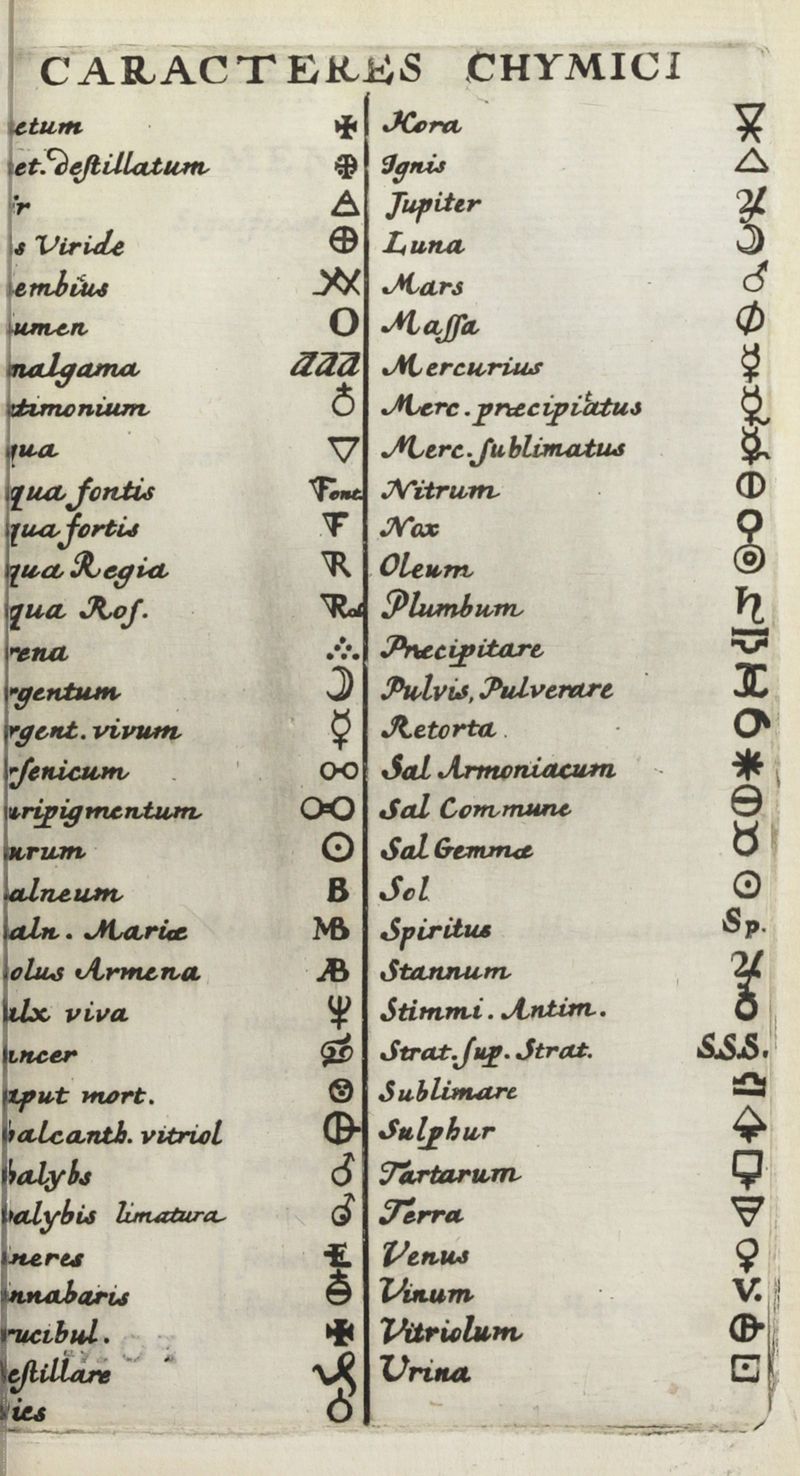 CARACTERES CHYMICI
etum
et. Destillatum
r
s Viride
embius
umen
malgama aaa
timonium
qua
qua fontis Font.
qua fortis F
qua Regia R
qua Ros. Ros
rena
rgentum
rgent. vivum
rsenicum
uripigmentum
urum
alneum B
aln. Mariæ MB
olus Armena AB
alx viva
ancer
aput mort.
halcanth. vitriol
halybs
halybis limatura
ineres E
innabaris
rucibul.
estillare
ies
Hora
Ignis
Jupiter
Luna
Mars
Massa
Mercurius
Merc. præcipitatus
Merc. sublimatus
Nitrum
Nox
Oleum
Plumbum
Præcipitare
Pulvis, Pulverare
Retorta.
Sal Armoniacum
Sal Commune
Sal Gemmæ
Sol
Spiritus Sp.
Stannum
Stimmi. Antim.
Strat. sup. Strat. SSS.
Sublimare
Sulphur
Tartarum
Terra
Venus
Vinum V.
Vitriolum
Urina